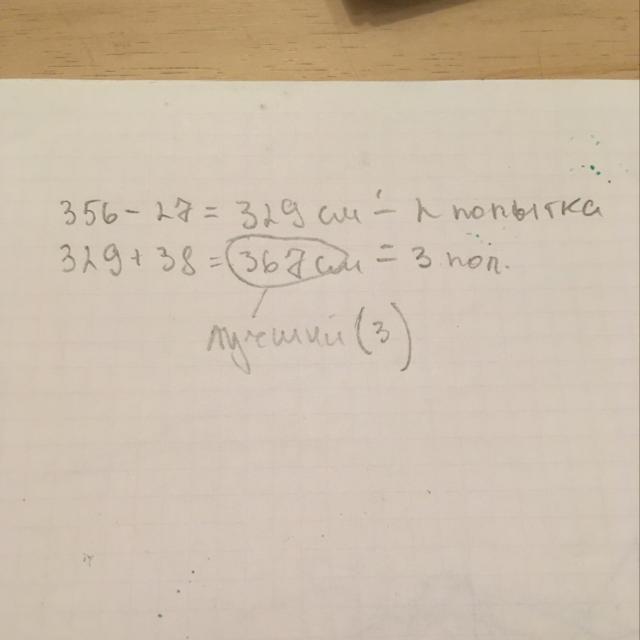 356 - 27 = 329 см - 2 попытка
329 + 38 = 367 см = 3 поп.
лучший (3)